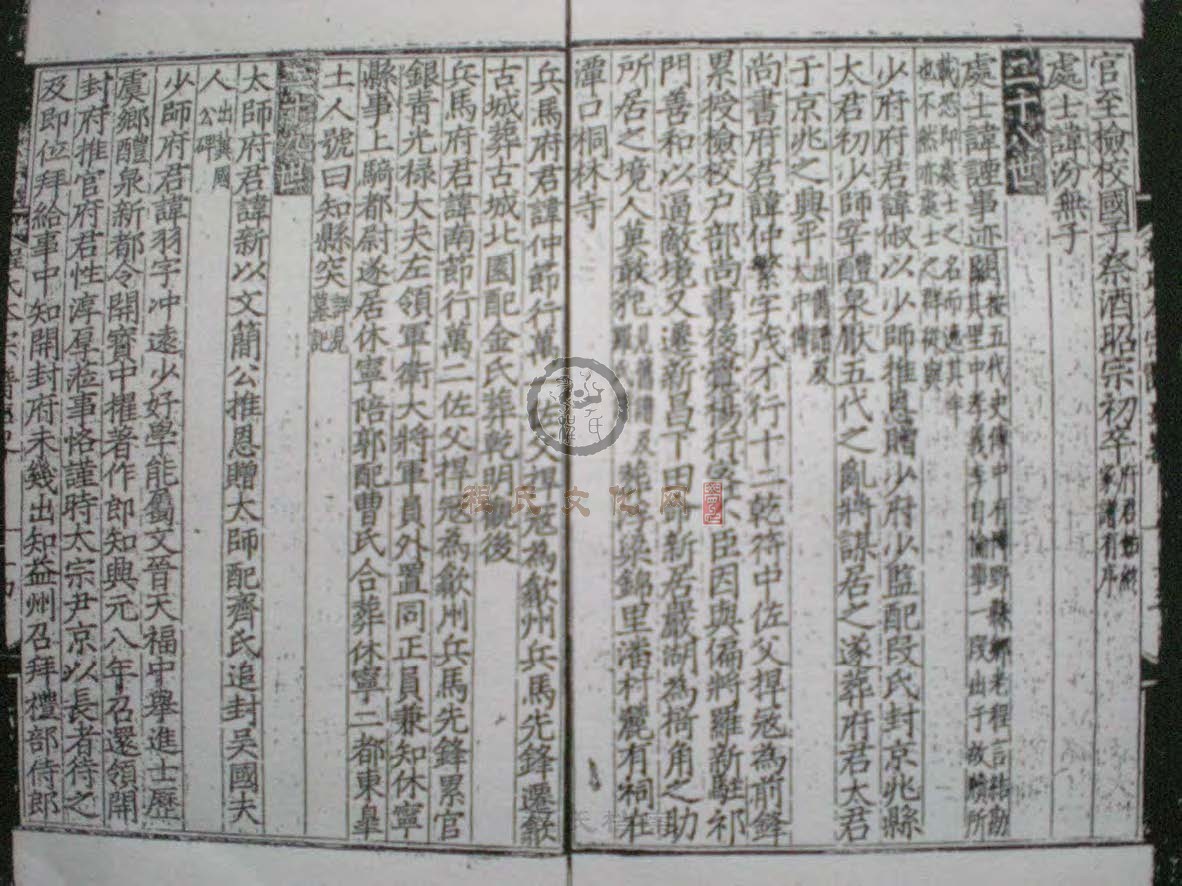 官至檢校國子祭酒昭宗初卒
處士諱汾無子
二十八世
處士諱謰事迹闕按五代史傳中有博野縣鄉老程言結
其里中孝義李自倫事一段出于故牘所
載恐即處士之名而過其
也不然亦處士之群從
少府府君諱俶以少師推恩贈少府少監配段氏封京兆縣
大君初少師宰醴泉厭五代之亂將謀居之遂葬府君太君
于京兆之興平出舊譜及大中
尚書府君諱仲繁字茂才行十二乾符中佐父捍寇為前鋒
累授檢校户部尚書後疊楊行密不臣因與偏將羅新駐祁
門善和以逼敵境又遷新昌下田即新居嚴湖為掎角之助
所居之境人莫敢犯見舊譜及葬孚梁錦里潘村麗有祠在
潭口桐林寺
兵馬府君諱仲節行萬一佐父捍寇為歙州兵馬先鋒遷歙
古城葬古城北園配金氏葬乾明觀後
兵馬府君諱南節行萬二佐父捍寇為歙州兵馬先鋒累官
銀青光禄大夫左領軍衛大將軍員外置同正員兼知休寧
縣事上騎都尉遂居休寧陪郭配曹氏合葬休寧二都東臯
土人號曰知縣突詳見墓記
二十九世
太師府君諱新以文簡公推恩贈太師配齊氏追封吳國夫
人出冀國公碑
少師府君諱羽字冲遠少好學能屬文晉天福中舉進士歷
虞鄉醴泉新都令開寶中擢著作郎知興元八年召還領開
封府推官府君性淳厚蒞事恪謹時太宗尹京以長者待之
及即位拜給事中知開封府未幾出知益州召拜禮部侍郎
程氏文化网